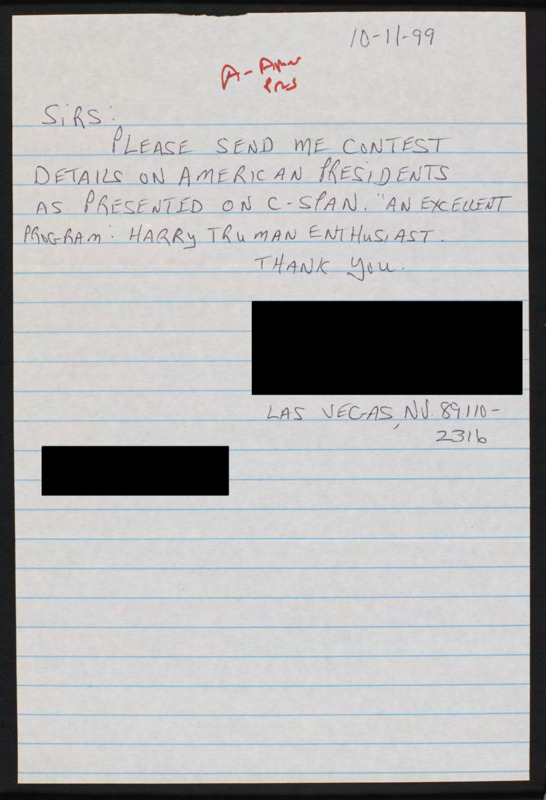 10-11-99
A-
SIRS:
PLEASE SEND ME CONTEST
DETAILS ON AMERICAN PRESIDENTS
AS PRESENTED ON C-SPAN. "AN EXCELLENT
PROGRAM" HARRY TRUMAN ENTHUSIAST.
THANK YOU.
LAS VEGAS, NV. 89110-
2316